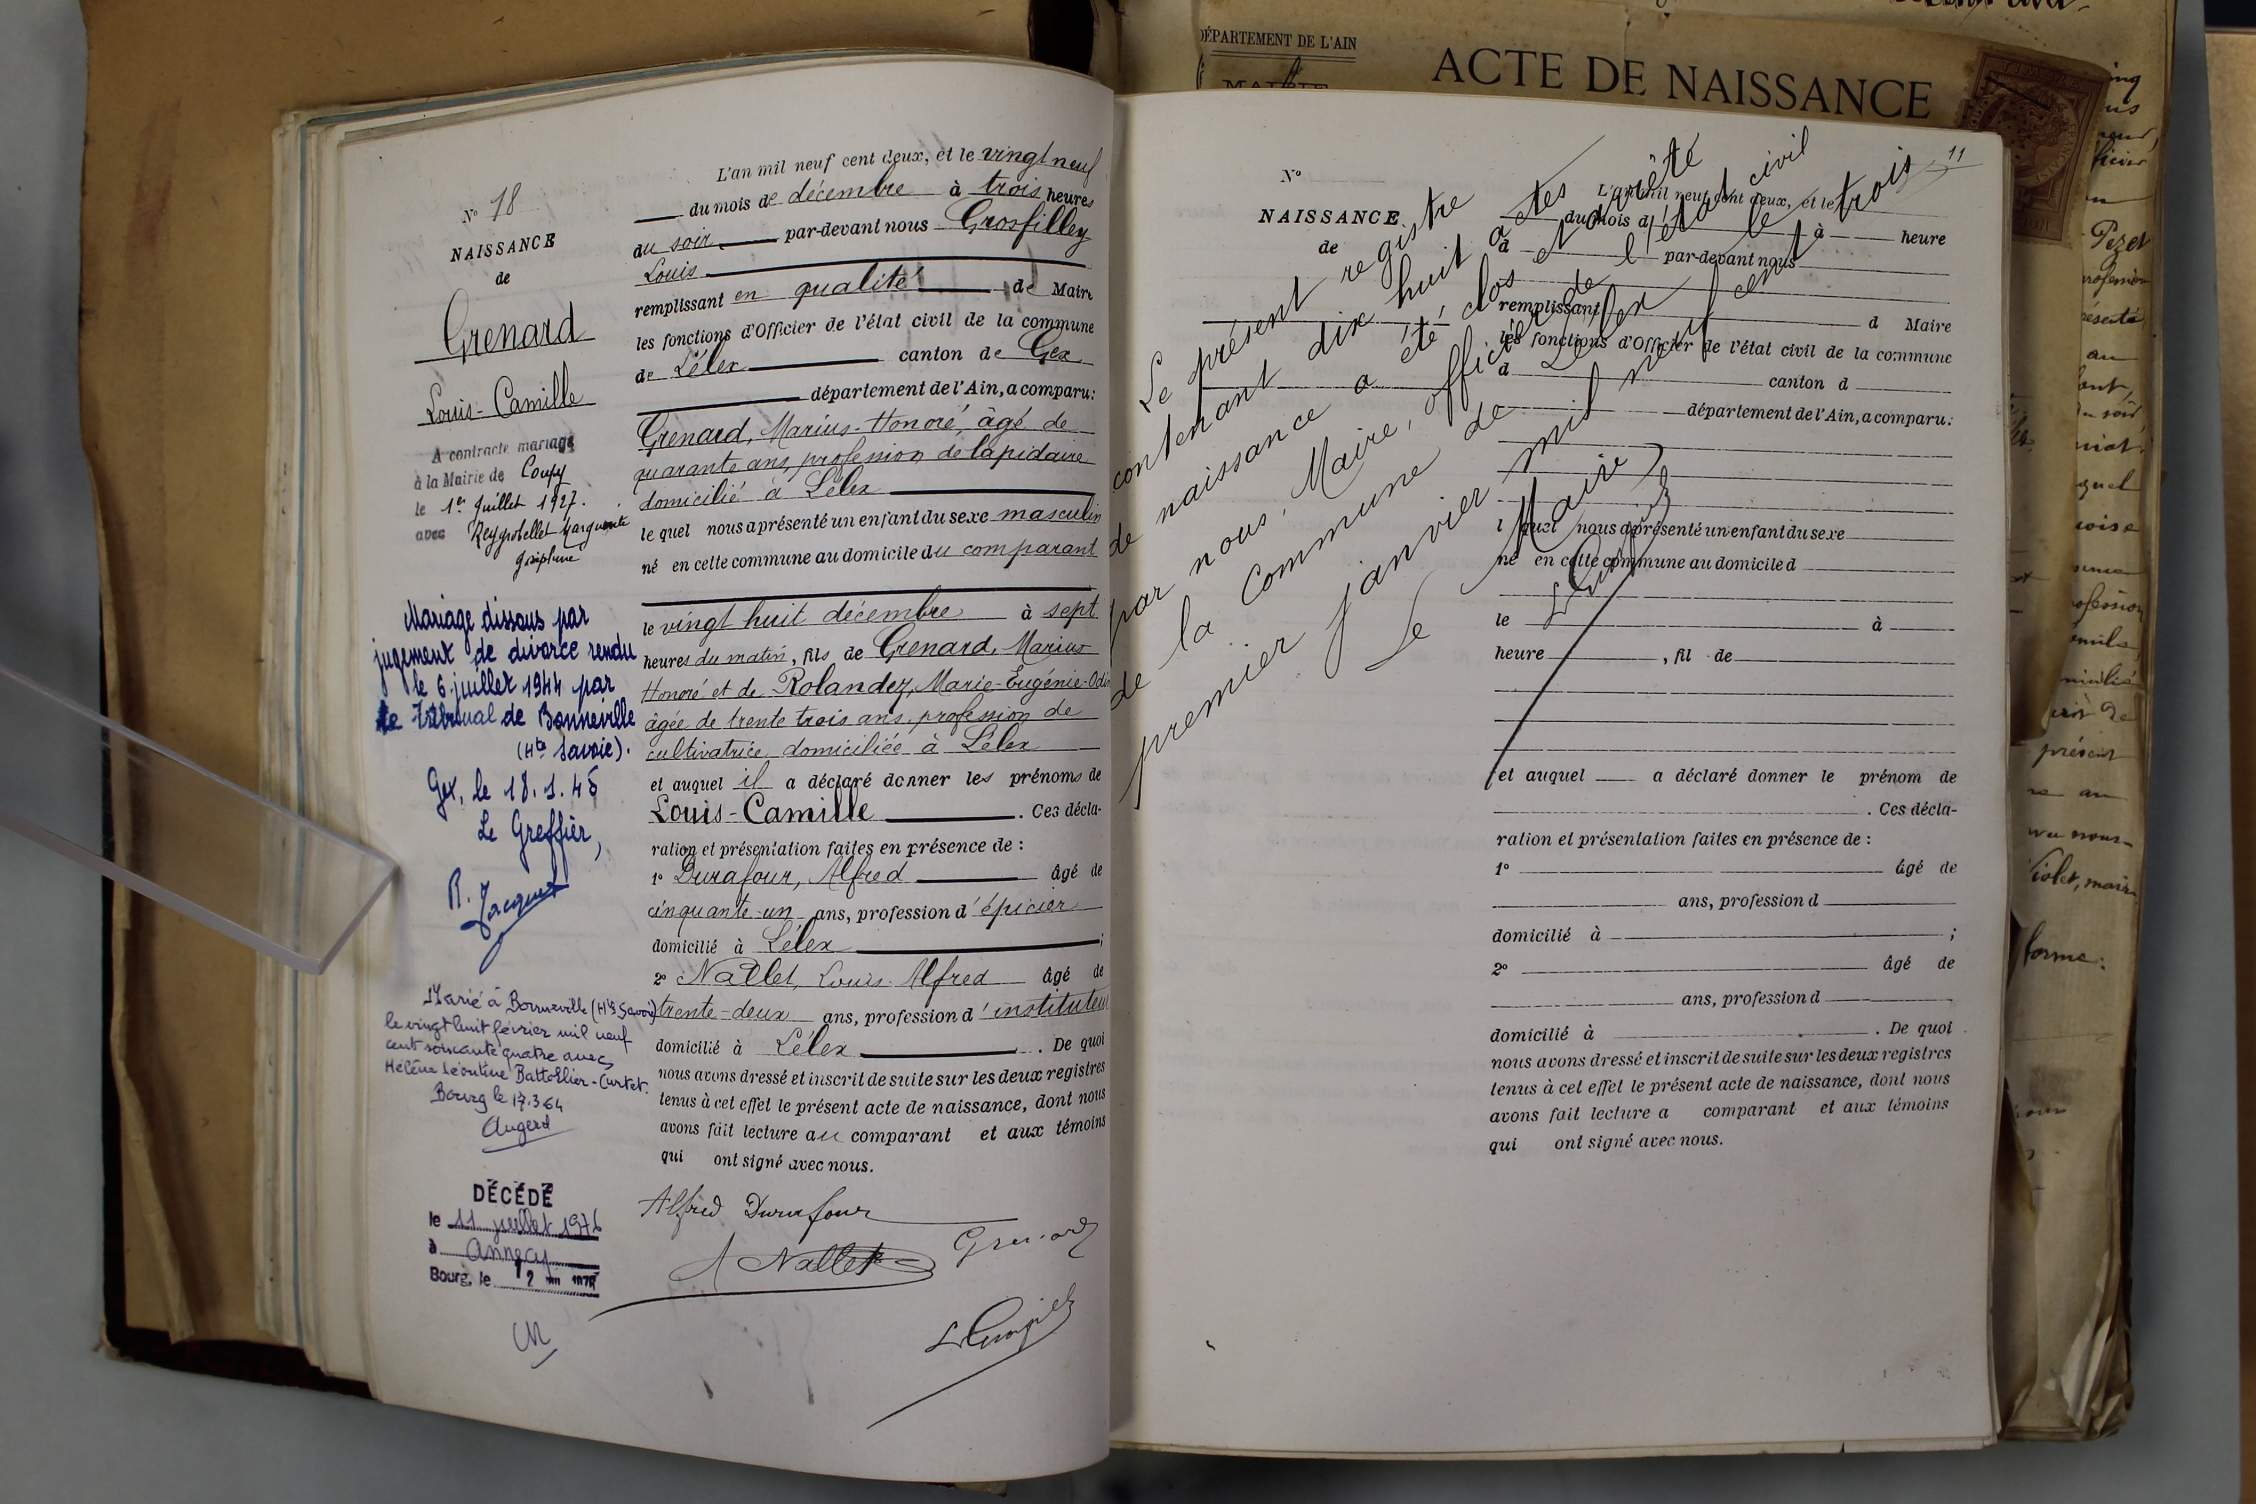 N° 18
NAISSANCE
de
Grenard
Louis-Camille
A contracté mariage
à la Mairie de Coupy
le 1er Juillet 1927.
avec Reygrobellet Marguerite
Joséphine
Mariage dissous par
jugement de divorce rendu
le 6 juillet 1944 par
le Tribunal de Bonneville
(Hte Savoie).
Gex, le 18.1.45
Le Greffier,
R. Jacquet
Marié à Bonneville (Hte Savoie)
le vingt huit février mil neuf
cent soixante quatre avec
Hélène Léontine Battollier-Curtet.
Bourg le 17.3.64
Augerd
DÉCÉDÉ
le 11 juillet 1976
à Annecy
Bourg, le 12
L'an mil neuf cent deux, et le vingt neuf
du mois de décembre à trois heures
du soir par-devant nous Grosfilley
Louis
remplissant en qualité de Maire
les fonctions d'Officier de l'état civil de la commune
de Lélex canton de Gex
département de l'Ain, a comparu:
Grenard, Marius-Honoré, âgé de
quarante ans, profession de lapidaire
domicilié à Lélex
le quel nous a présenté un enfant du sexe masculin
né en cette commune au domicile du comparant
le vingt huit décembre à sept
heures du matin, fils de Grenard, Marius
Honoré et de Rolandez, Marie-Eugénie-
âgée de trente trois ans, profession de
cultivatrice domiciliée à Lélex
et auquel il a déclaré donner les prénoms de
Louis-Camille . Ces décla-
ration et présentation faites en présence de :
1° Durafour, Alfred âgé de
cinquante-un ans, profession d'épicier
domicilié à Lélex ;
2° Nallet, Louis Alfred âgé de
trente-deux ans, profession d'instituteur
domicilié à Lélex . De quoi
nous avons dressé et inscrit de suite sur les deux registres
tenus à cet effet le présent acte de naissance, dont nous
avons fait lecture au comparant et aux témoins
qui ont signé avec nous.
Alfred Durafour
A Nallet Grenard
DÉPARTEMENT DE L'AIN
MAIRIE
ACTE DE NAISSANCE
11
N°
NAISSANCE
de
Le présent registre
contenant dix huit actes
de naissance a été clos et arrêté
par nous, Maire, officier de l'état civil
de la commune de Lélex le
premier janvier mil neuf cent trois
Le Maire
L'an mil neuf cent deux, et le
du mois d à heure
à par-devant nous
remplissant d Maire
les fonctions d'Officier de l'état civil de la commune
d canton d
département de l'Ain, a comparu:
l quel nous a présenté un enfant du sexe
né en cette commune au domicile d
le à
heure , fil de
et auquel a déclaré donner le prénom de
. Ces décla-
ration et présentation faites en présence de :
1° âgé de
ans, profession d
domicilié à ;
2° âgé de
ans, profession d
domicilié à . De quoi
nous avons dressé et inscrit de suite sur les deux registres
tenus à cet effet le présent acte de naissance, dont nous
avons fait lecture a comparant et aux témoins
qui ont signé avec nous.
Pezet
présent
Violet, maire
forme: